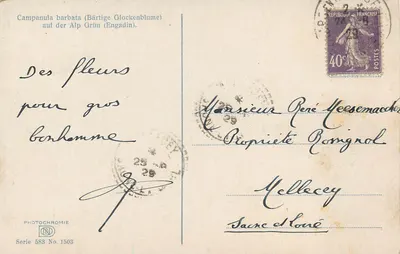 Campanula barbata (Bärtige Glockenblume)
auf der Alp Grün (Engadin).
Des fleurs
pour gros
bonhomme
PHOTOCHROMIE
Serie 588 No. 1503
RÉPUBLIQUE FRANÇAISE
40c
POSTES
29
25
29
25 - 6
29
Monsieur René Meesemaecker
Propriété Rossignol
Mellecey
Saône et Loire